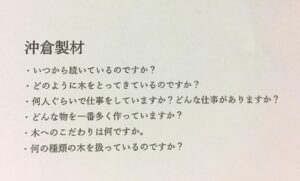 沖倉製材
・いつから続いているのですか？
・どのように木をとってきているのですか？
・何人ぐらいで仕事をしていますか？どんな仕事がありますか？
・どんな物を一番多く作っていますか？
・木へのこだわりは何ですか。
・何の種類の木を扱っているのですか？